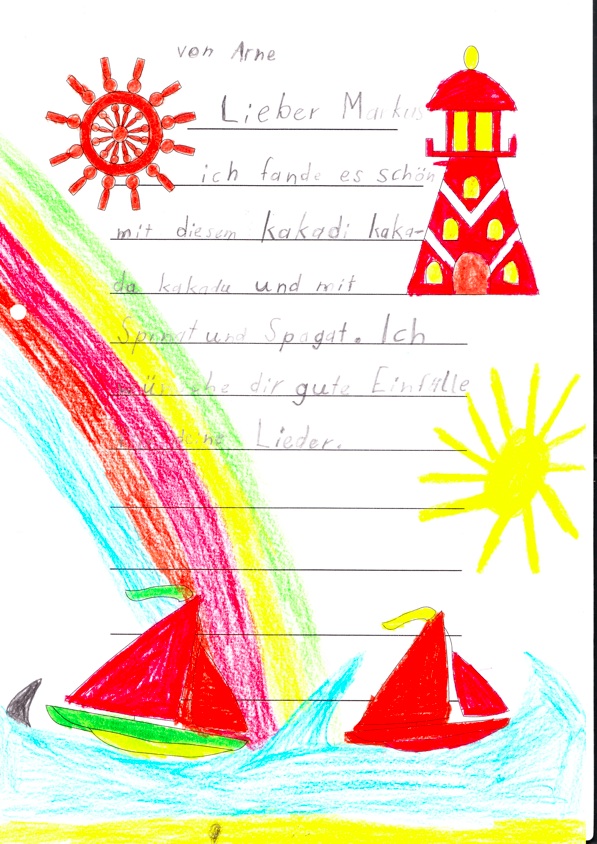 von Arne
Lieber Markus
ich fande es schön
mit diesem kakadi kaka-
da kakadu und mit
Spinat und Spagat. Ich
wünsche dir gute Einfälle
deine Lieder.